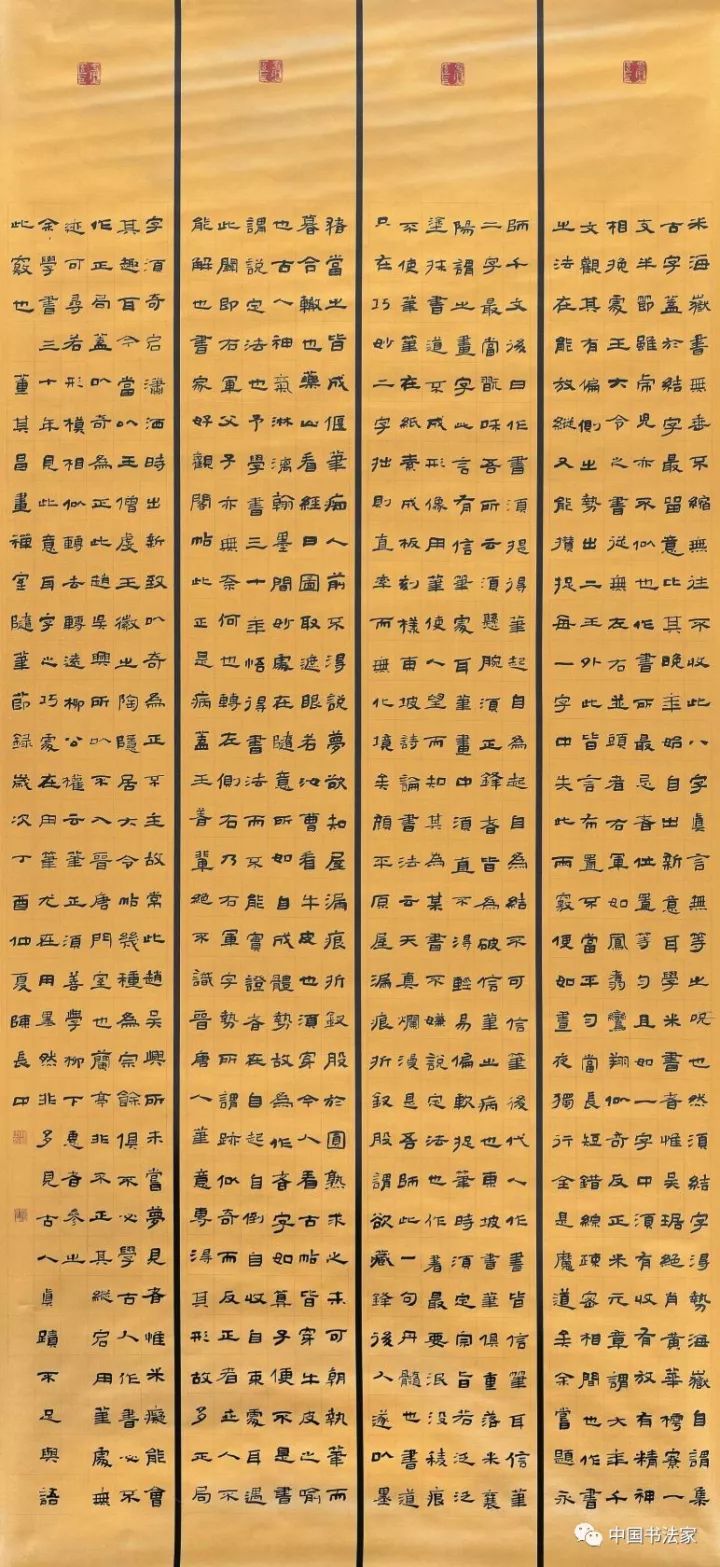 米海嶽書無垂不縮無往不收此八字真言無等之呪也然須結字得勢海嶽自謂集
古字蓋於結字最留意比其晚年始自出新意耳學米書者惟吳琚絕肖黃華樗寮一
支半節雖虎兒亦不似也作書所最忌者位置等勻且如一字中須有收有放有精神
相挽處王大令之書從無左右並頭者右軍如鳳翥鸞翔似奇反正米元章謂大年千
文觀其有偏側之勢出二王外此皆言布置不當平勻當長短錯綜疎密相間也作書
之法在能放縱又能攢捉每一字中失此兩竅便如晝夜獨行全是魔道矣余嘗題永
師千文後曰作書須提得筆起自為起自為結不可信筆後代人作書皆信筆耳信筆
二字最當翫味吾所云須懸腕須正鋒者皆為破信筆之病也東坡書筆俱重落米襄
陽謂之畫字此言有信筆處耳筆畫中須直不得輕易偏軟捉筆時須定宗旨若泛泛
塗抹書道不成形像用筆使人望而知其為某書不嫌說定法也作書最要泯沒稜痕
不使筆筆在紙素成板刻樣東坡詩論書法云天真爛漫是吾師此一句丹髓也書道
只在巧妙二字拙則直率而無化境矣顏平原屋漏痕折釵股謂欲藏鋒後人遂以墨
猪當之皆成偃筆痴人前不得說夢欲知屋漏痕折釵股於圓熟求之未可朝執筆而
暮合轍也藥山看經曰圖取遮眼若汝曹看牛皮也須穿今人看古帖皆穿牛皮之喻
也古人神氣淋漓翰墨間妙處在隨意所如自成體勢故為作者字如算子便不是書
謂說定法也予學書三十年悟得書法而不能實證者在自起自倒自收自束處耳過
此關即右軍父子亦無奈何也轉左側右乃右軍字勢所謂跡似奇而反正者世人不
能解也書家好觀閣帖此正是病蓋王著輩絕不識晉唐人筆意專得其形故多正局
字須奇宕瀟洒時出新致以奇為正不主故常此趙吳興所未嘗夢見者惟米癡能會
其趣耳今當以王僧虔王徽之陶隱居大令帖幾種為宗餘俱不必學古人作書必不
作正局蓋以奇為正此趙吳興所以不入晉唐門室也蘭亭非不正其縱宕用筆處無
迹可尋若形模相似轉去轉遠柳公權云筆正須善學柳下惠者參之
余學書三十年見此意耳字之巧處在用筆尤在用墨然非多見古人真蹟不足與語
此竅也 董其昌畫禪室隨筆節錄歲次丁酉仲夏陳長中
中国书法家